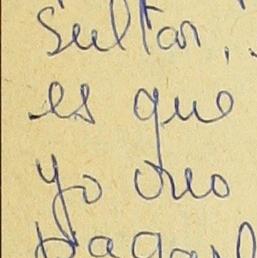 sultar,
es que
yo creo